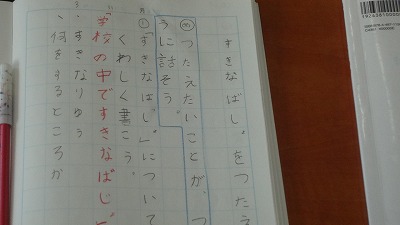 すきなばしょをつたえ
め つたえたいことが、つ
うに話そう。
① 「すきなばしょ」について
くわしく書こう。
「学校の中ですきなばしょ」
・すきなりゆう
・何をするところか